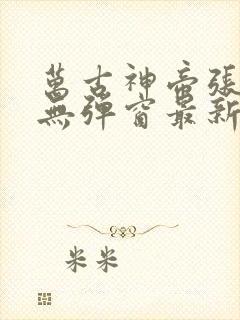 萬古神帝張
無彈窗最新
米米